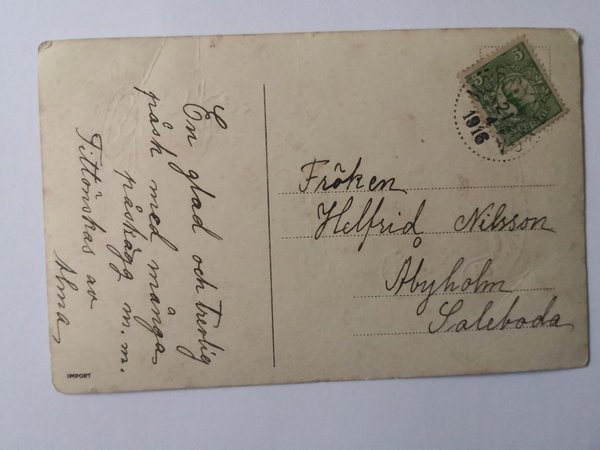 En glad och trevlig
påsk med många
påskägg m.m.
Tillönskas av
Alma
Fröken
Helfrid Nilsson
Åbyholm
Saleboda
5
1916
IMPORT